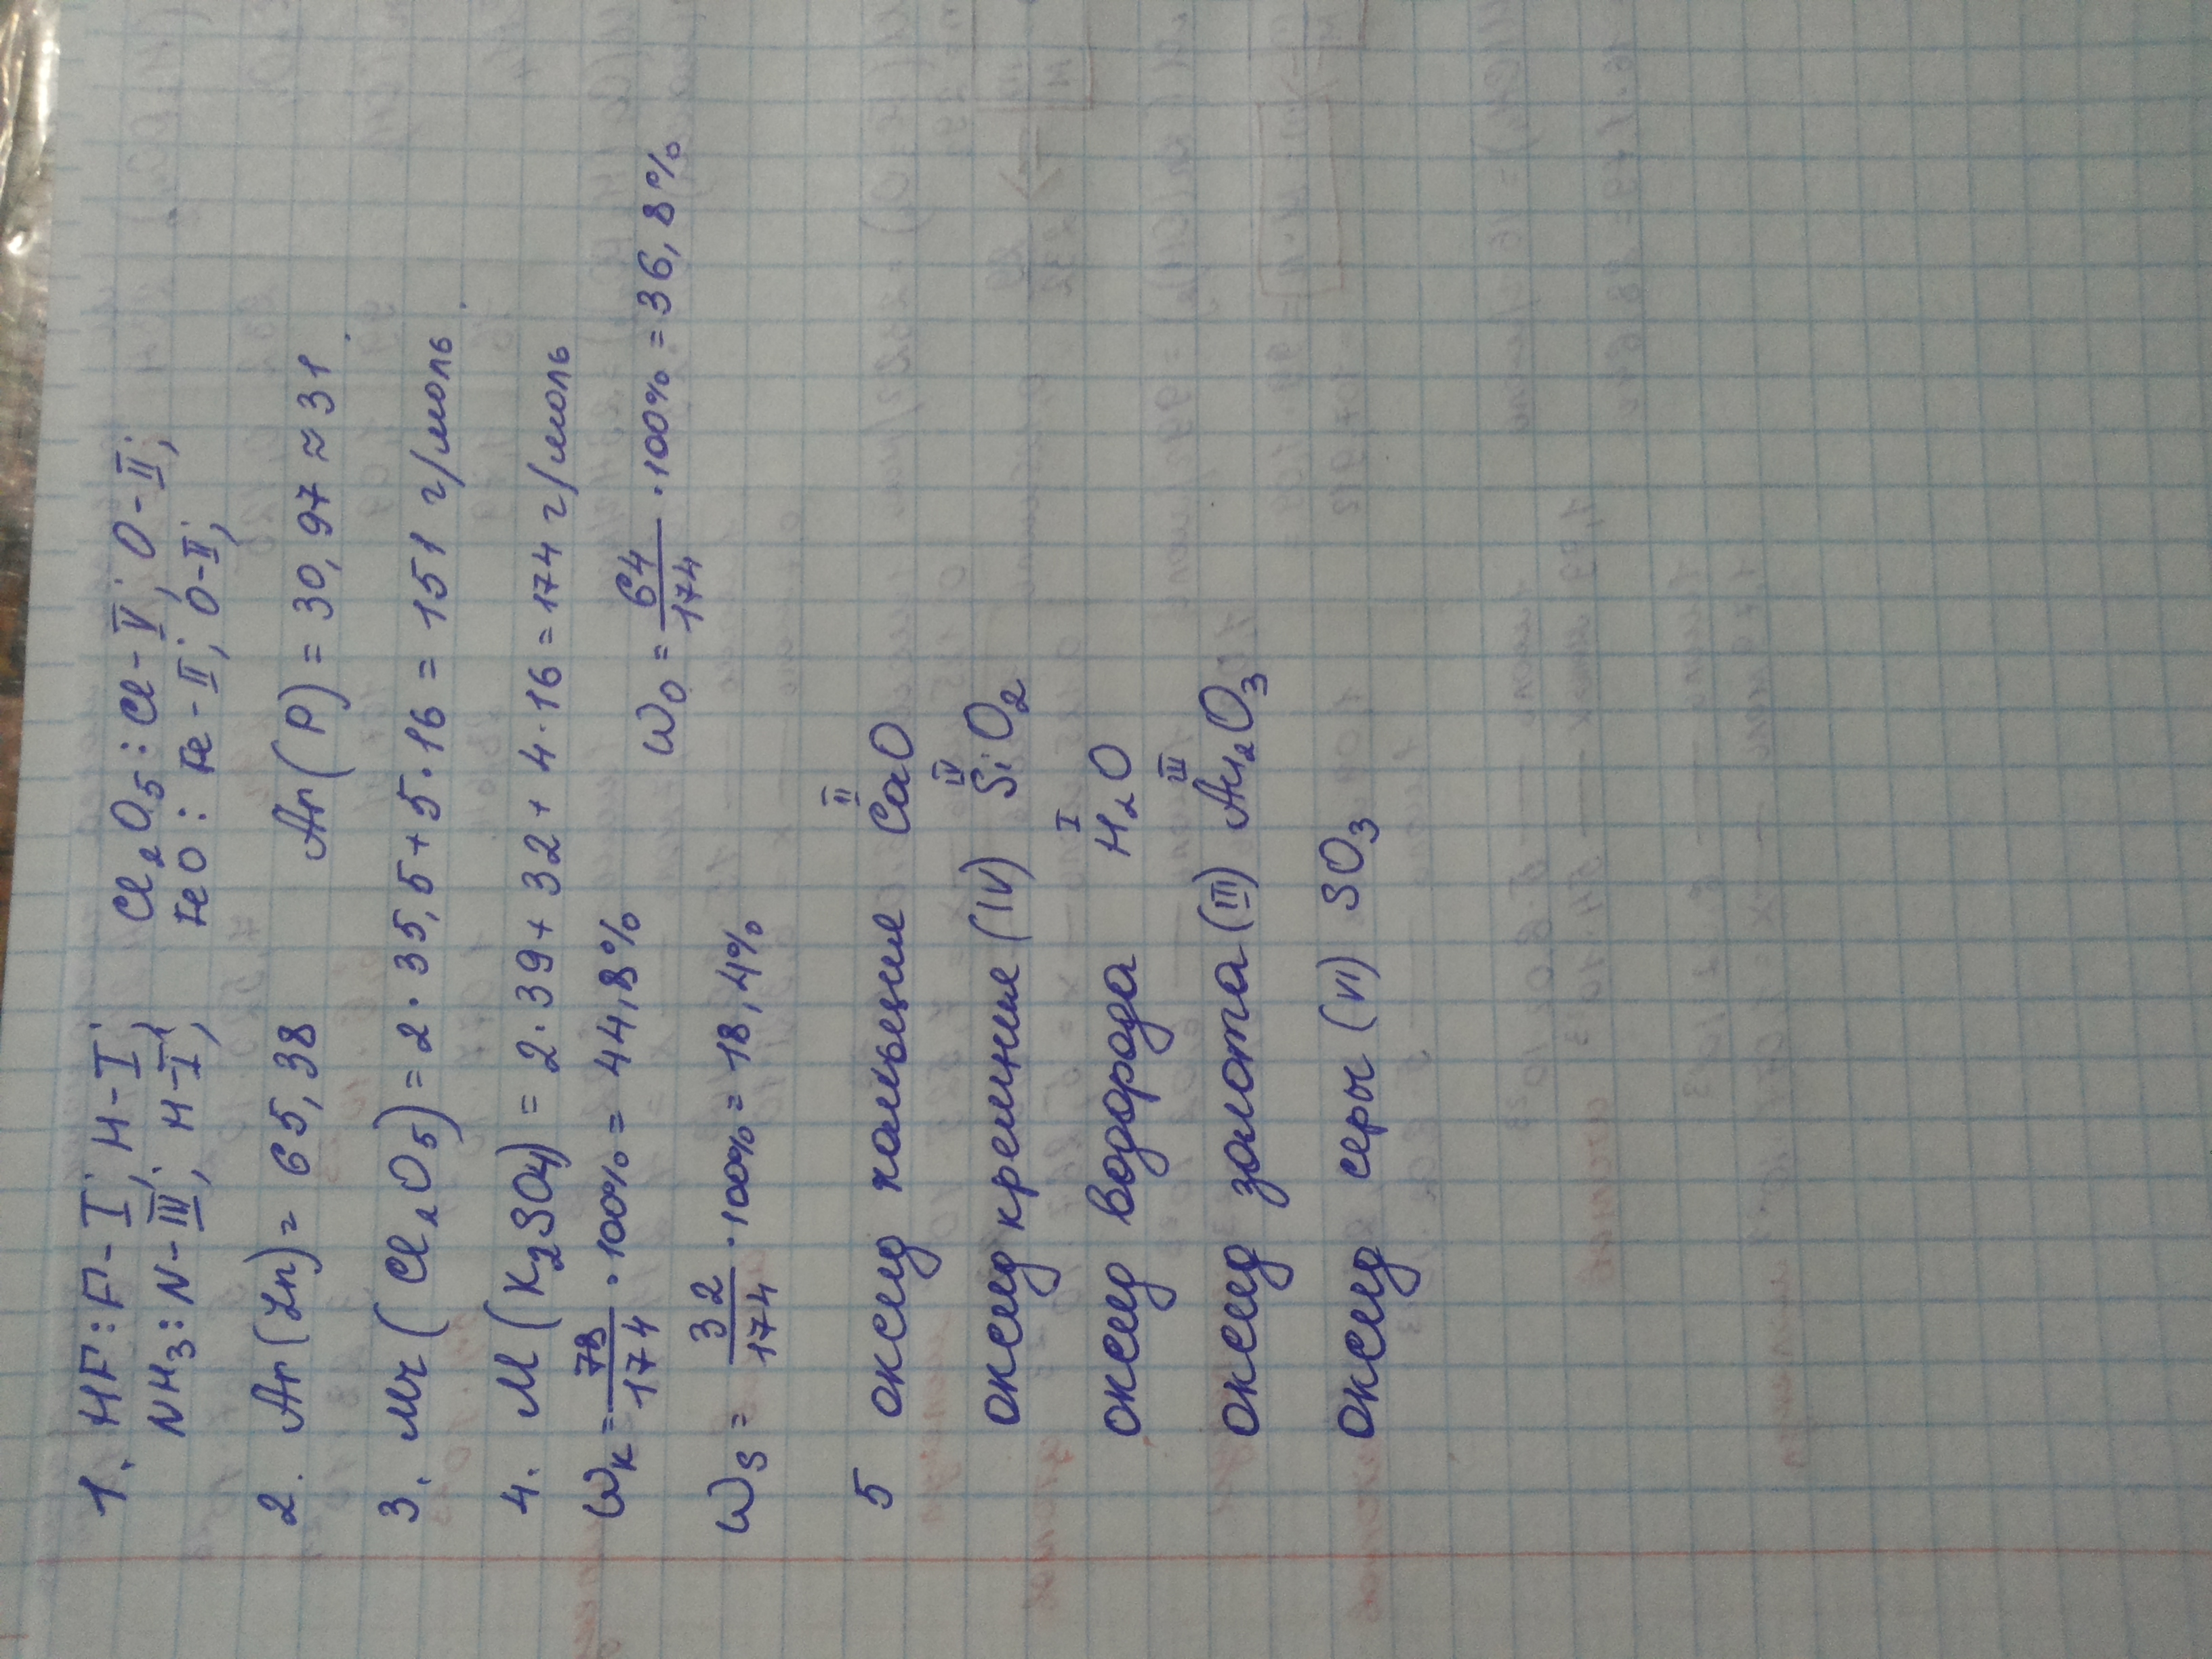 1. HF: F-I; H-I; Cl₂O₅: Cl-V; O-II;
NH₃: N-III; H-I; FeO: Fe-II; O-II;
2. Ar(Zn)= 65,38 Ar(P) = 30,97 ≈ 31
3. Mr(Cl₂O₅) = 2·35,5+5·16 = 151 г/моль
4. M(K₂SO₄) = 2·39+32+4·16=174 г/моль
WK = 78/174 · 100% = 44,8% WO = 64/174 · 100% = 36,8%
WS = 32/174 · 100% = 18,4%
5 оксид кальция II CaO
оксид кремния (IV) IV SiO₂
оксид водорода I H₂O
оксид золота (III) III Au₂O₃
оксид серы (VI) SO₃